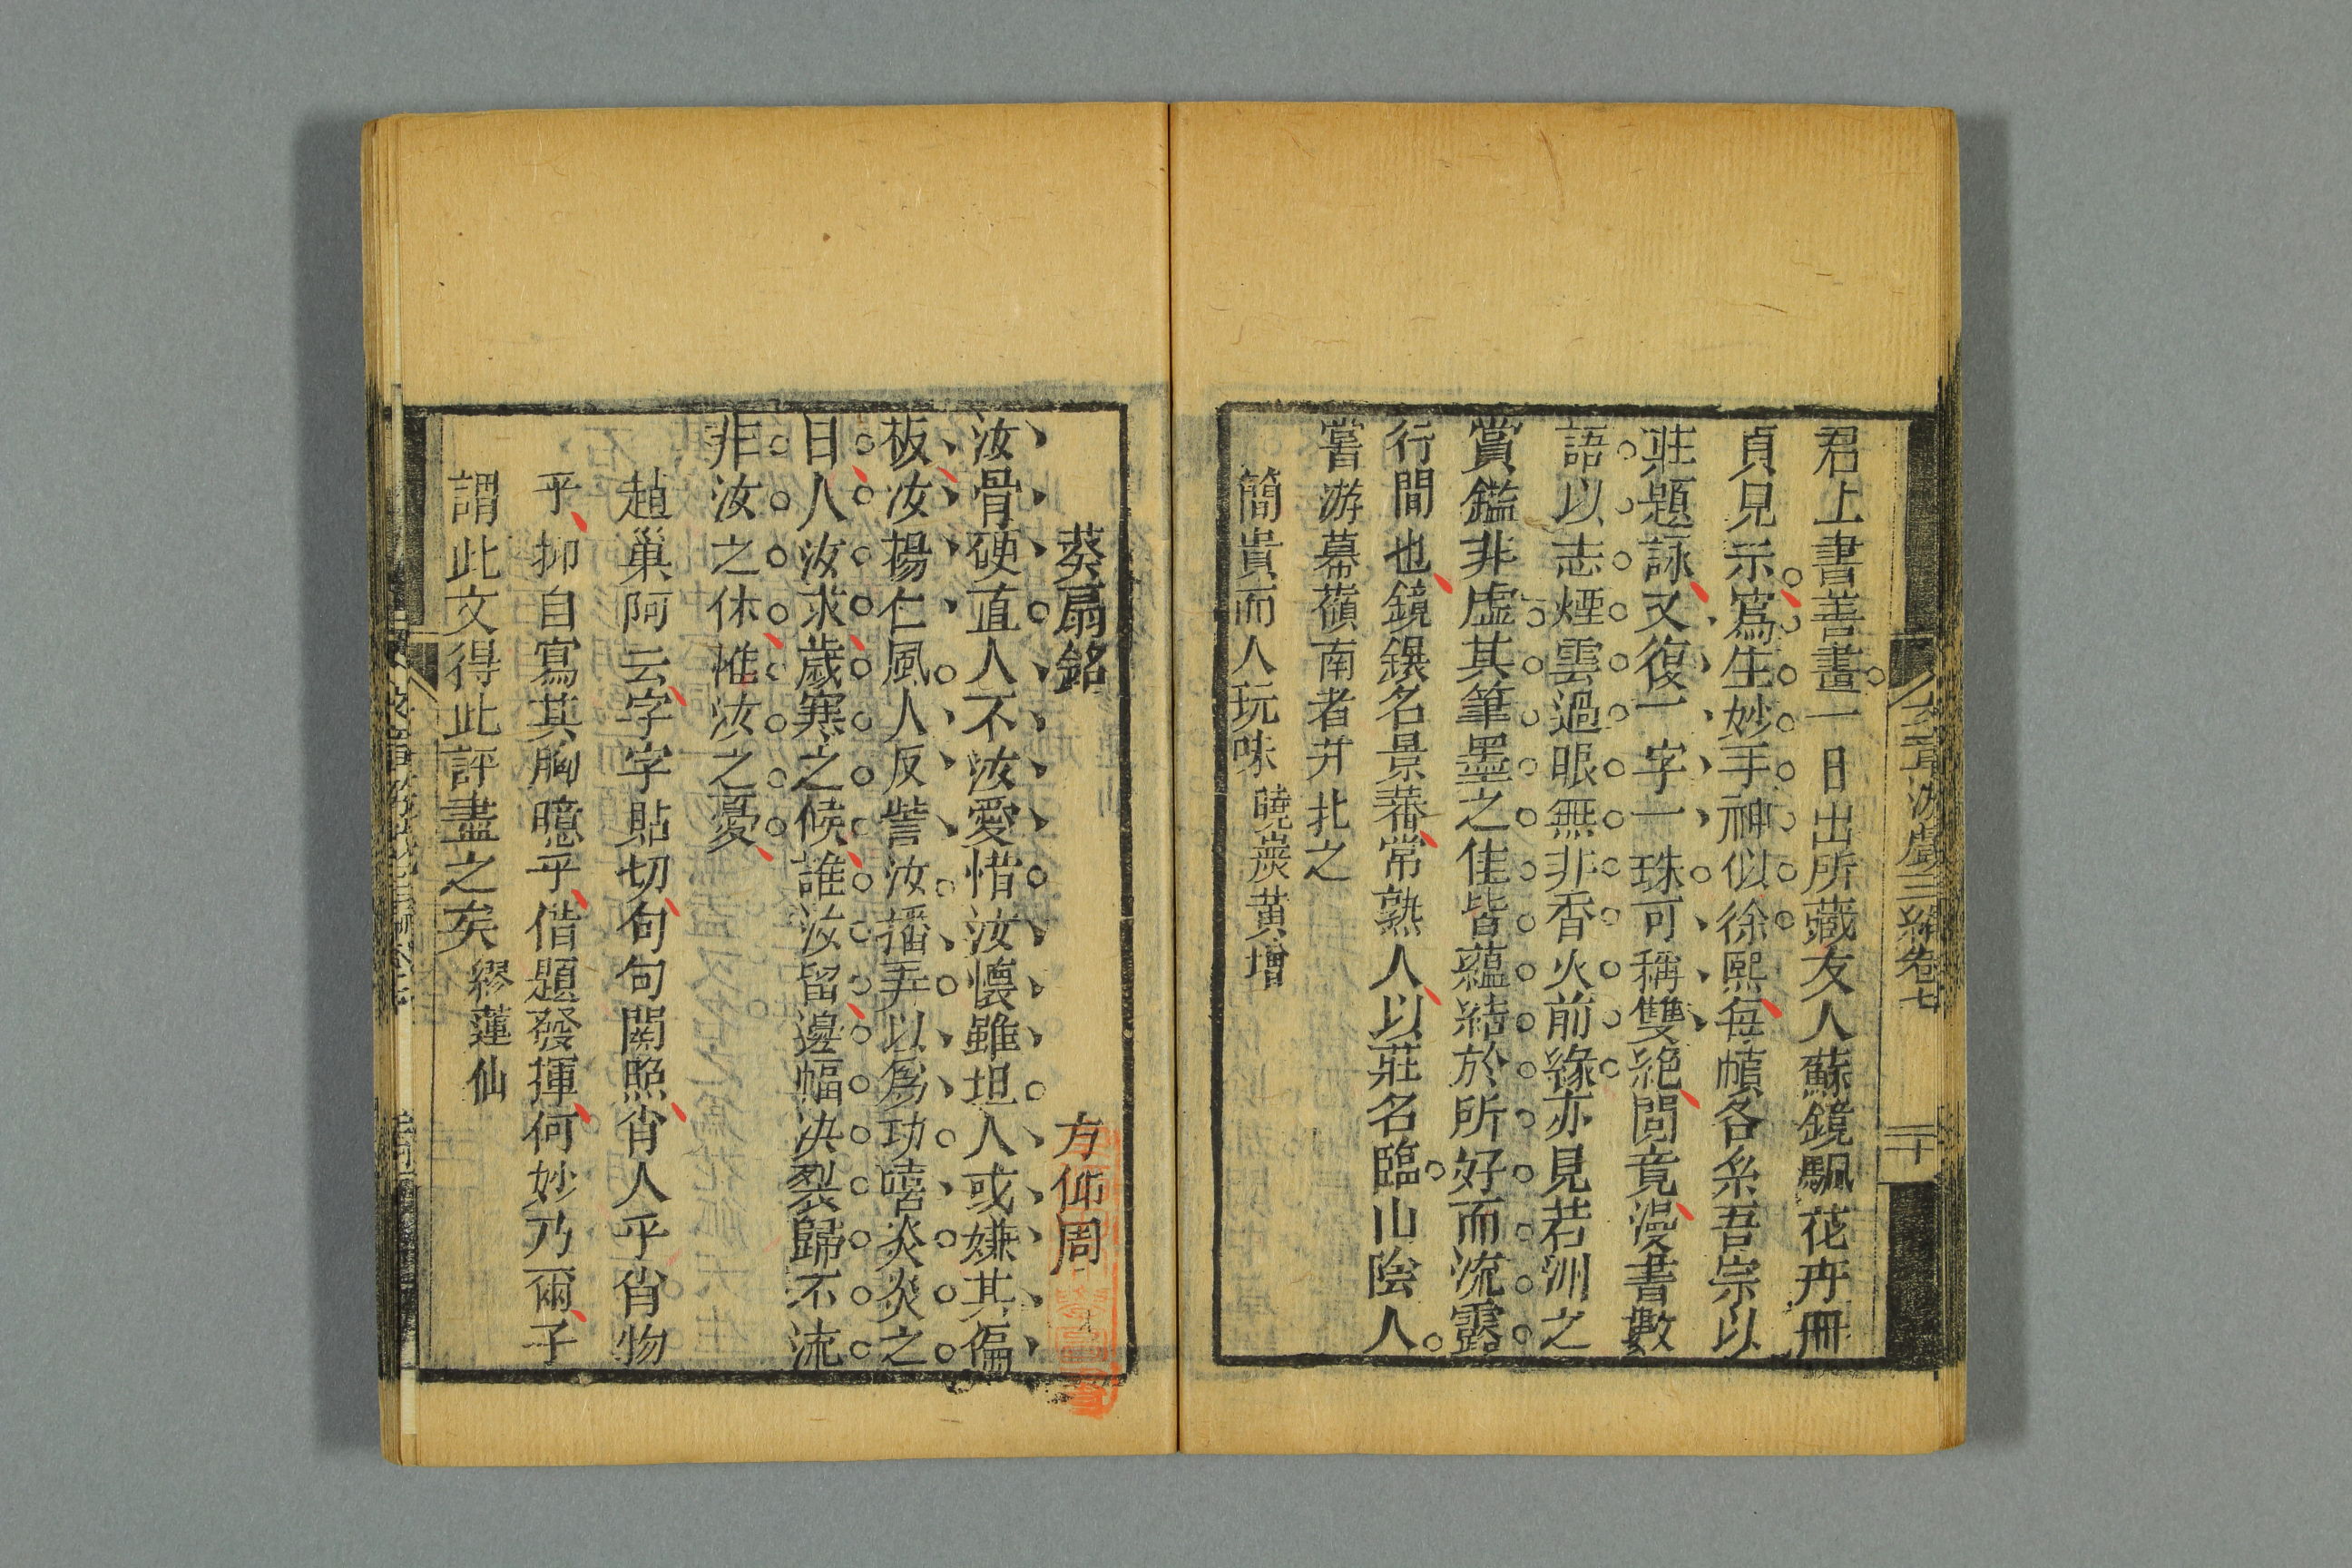 君上書善畫一日出所藏友人蘇鏡颿花卉冊
貞見示寫生妙手神似徐熙每幀各系吾宗以
莊題詠又復一字一珠可稱雙絶閲竟漫書數
語以志煙雲過眼無非香火前緣亦見若洲之
賞鑑非虛其筆墨之佳皆蘊結於所好而流露
行間也鏡鐉名景蕃常熟人以莊名臨山陰人
嘗游幕嶺南者并扎之
簡貴而人玩味 曉巖黃增
文章游戲三編卷七
三十
葵扇銘 方仰周
汝骨硬直人不汝愛惜汝懷雖坦人或嫌其偏
板汝揚仁風人反訾汝播弄以爲功嘻炎炎之
日人汝求歲寒之候誰汝留邊幅決裂歸不流
非汝之休惟汝之憂
趙巢阿云字字貼切句句關照肖人乎肖物
乎抑自寫其胸臆乎借題發揮何妙乃爾子
謂此文得此評盡之矣 繆蓮仙